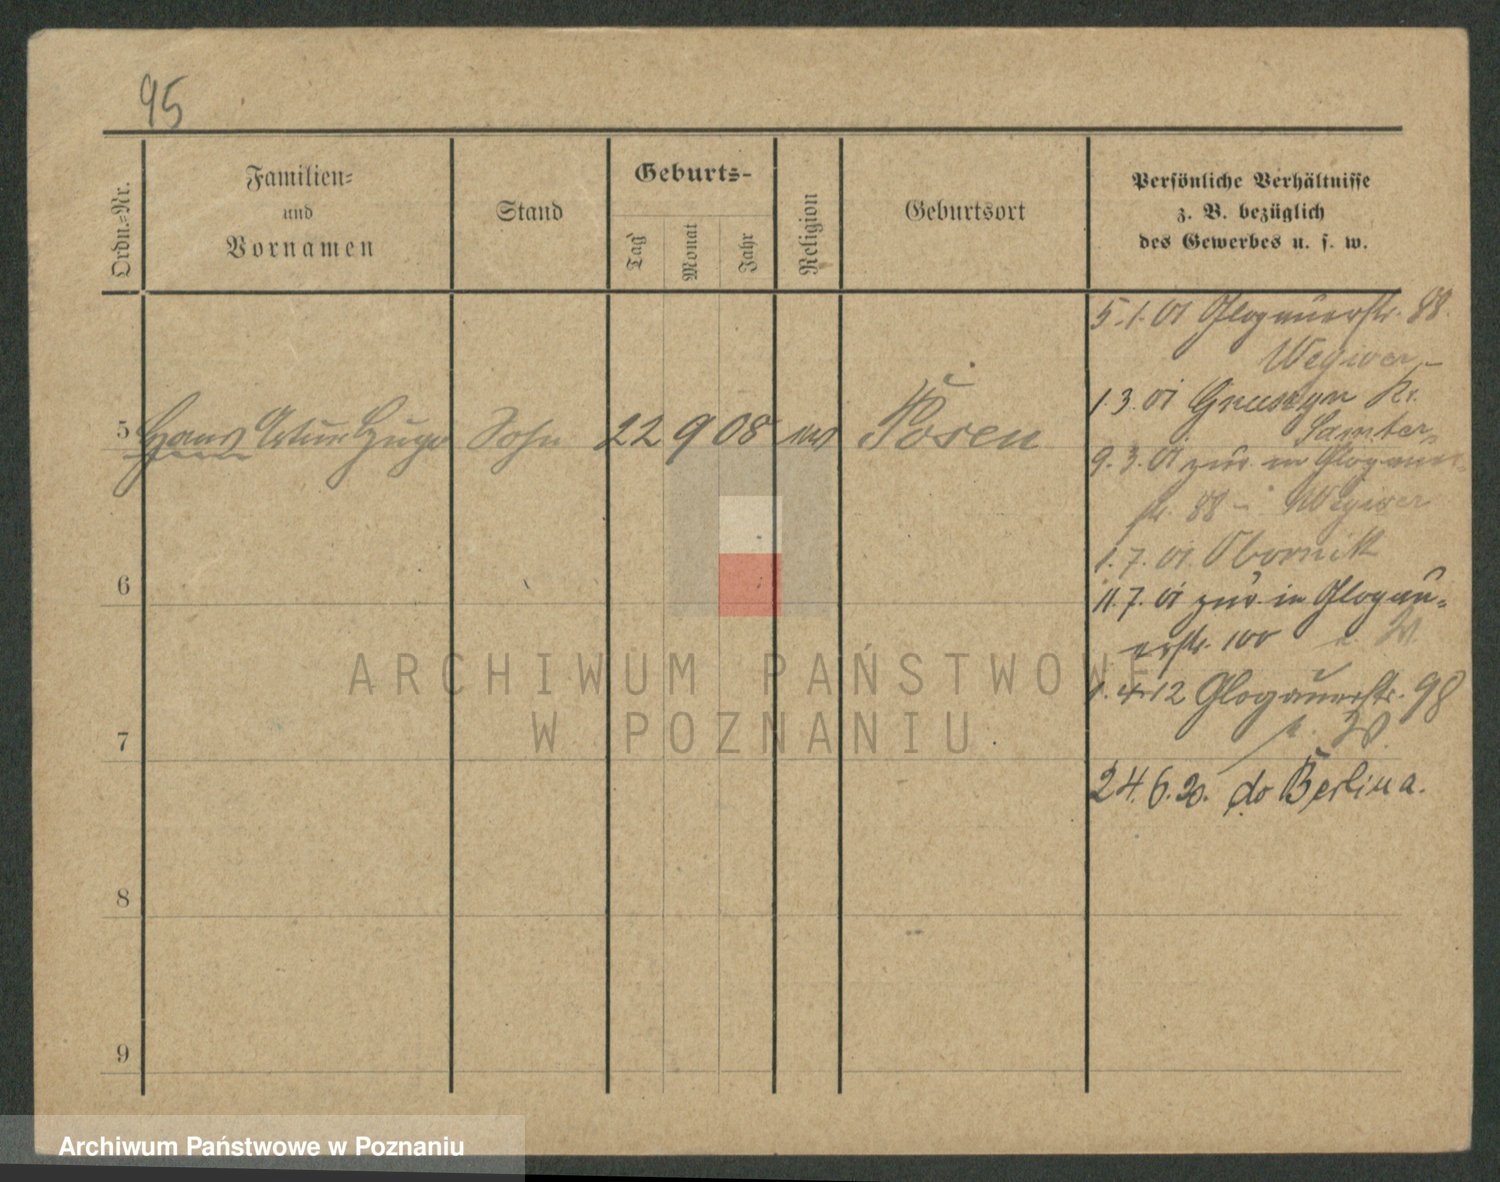 95
Ordn.-Nr.
Familien-
und
Vornamen
Stand
Geburts-
Tag
Monat
Jahr
Religion
Geburtsort
Persönliche Verhältnisse
z. B. bezüglich
des Gewerbes u. s. w.
5.1.01 Glogauerstr. 88.
1.3.01 Kr.
Samter
9.3.01 zur. in Glogauer
str. 88
1.7.01 Obornik
11.7.01 zur. in Glogau-
erstr. 100
1.4.12 Glogauerstr. 98
24.6.20. do Berlina.
5 Hans Artur Hugo Sohn 22 9 08 Posen
6
7
8
9
ARCHIWUM PAŃSTWOWE
W POZNANIU
Archiwum Państwowe w Poznaniu